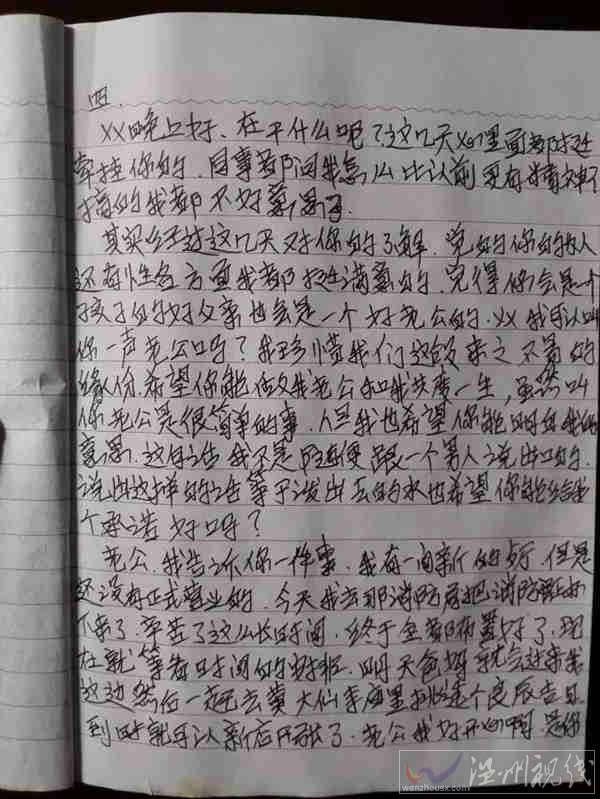 四.
XX晚上好、在干什么呢？这几天心里面都挺
牵挂你的、同事都问我怎么比以前更有精神了
搞的我都不好意思了.
其实经过这几天对你的了解、觉的你的为人
还有性各方面我都挺满意的、觉得你会是个
孩子的好父亲也会是一个好老公的、XX我可以叫
你一声老公吗？我珍惜我们这段来之不易的
缘份、希望你能做我老公和我共度一生，虽然叫
你老公是很简单的事、但我也希望你能明白我的
意思、这句话我不是随便跟一个男人说出口的、
说出这样的话等于泼出去的水也希望你能给我
个承诺好吗？
老公、我告诉你一件事、我有一间新的店、但是
还没有正式营业的、今天我去那消防局把消防证拿
下来了、辛苦了这么长时间、终于全都布置好了、现
在就等着时间的安排、明天爸妈就会过来我
这边然后一起去黄大仙李庙里挑选个良辰吉日
到时就可以新店开张了、老公我好开心啊、是你
温州视线
wenzhousx.com